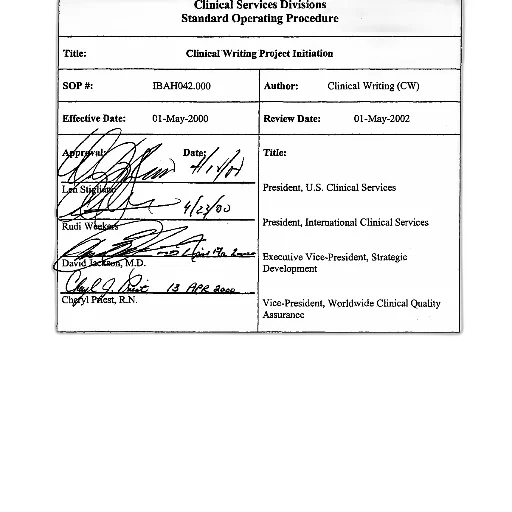 Clinical Services Divisions
Standard Operating Procedure
Title: Clinical Writing Project Initiation
SOP #: IBAH042.000 Author: Clinical Writing (CW)
Effective Date: 01-May-2000 Review Date: 01-May-2002
Approval: Date: Title:
Len Stigliano President, U.S. Clinical Services
4/23/00
Rudi Weekers President, International Clinical Services
David Jackson, M.D. Executive Vice-President, Strategic
Development
Cheryl J. Priest 13 APR 2000
Cheryl Priest, R.N. Vice-President, Worldwide Clinical Quality
Assurance